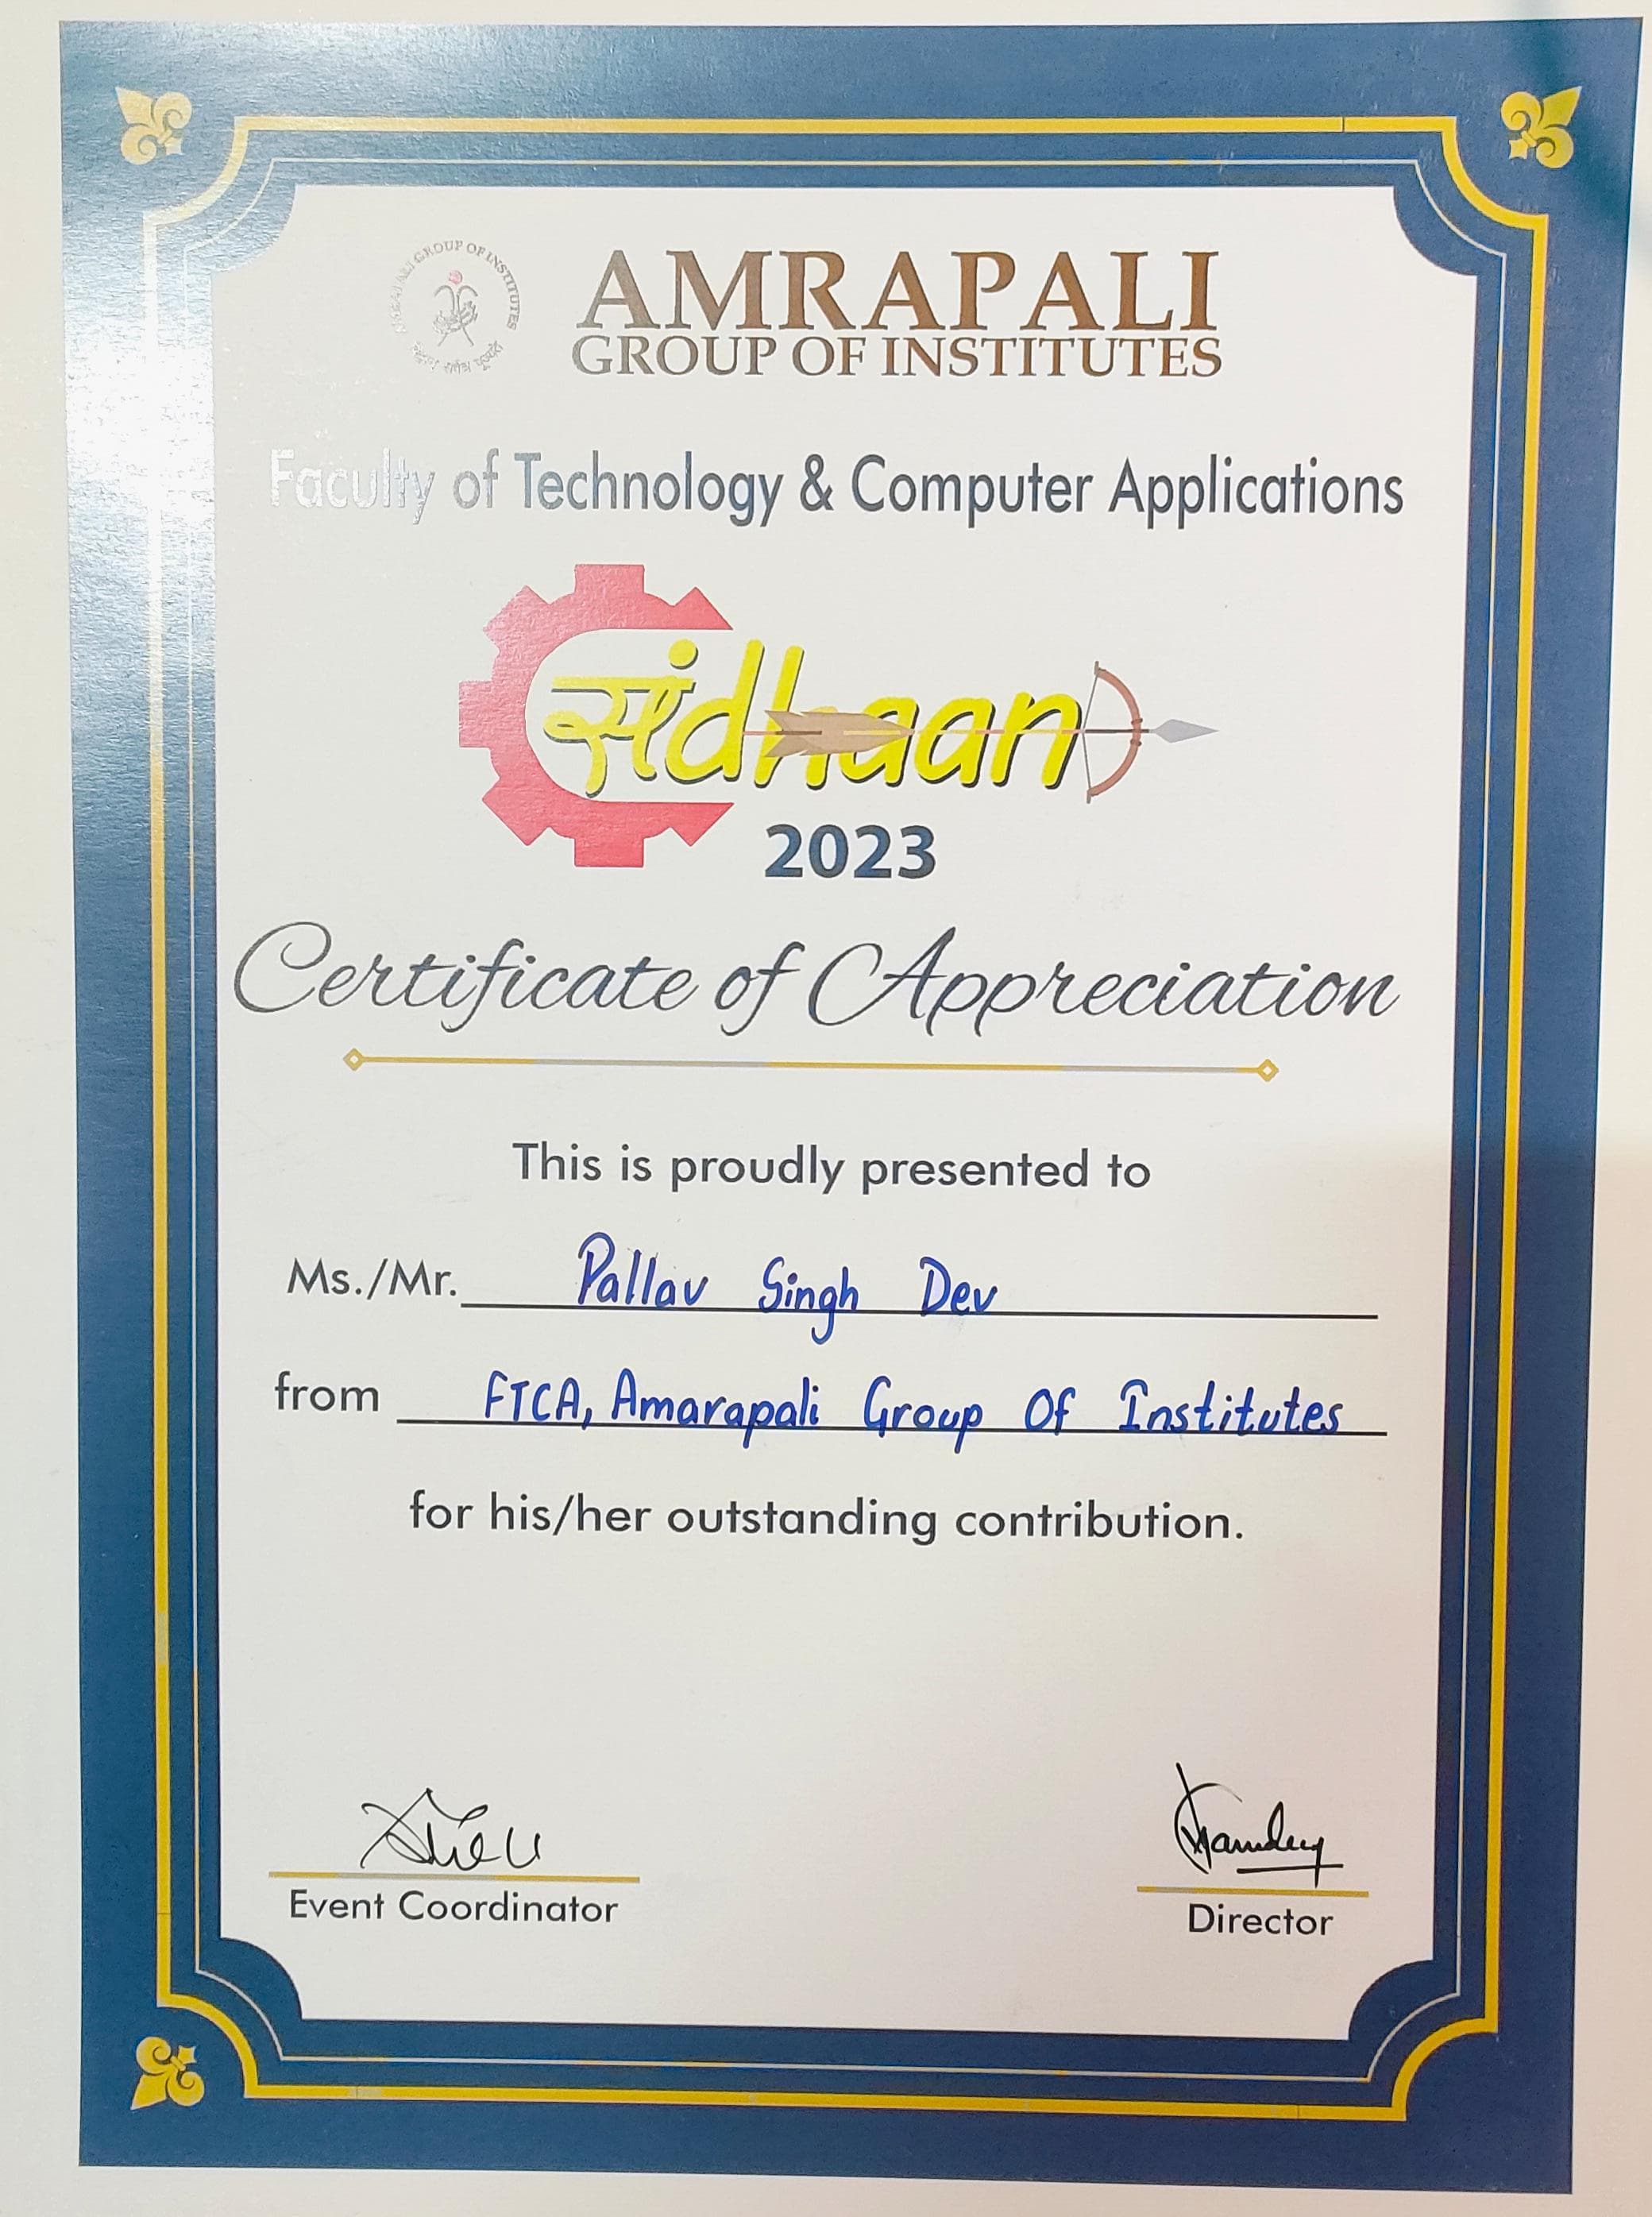 AMRAPALI GROUP OF INSTITUTES
AMRAPALI
GROUP OF INSTITUTES
Faculty of Technology & Computer Applications
संdhaan
2023
Certificate of Appreciation
This is proudly presented to
Ms./Mr. Pallav Singh Dev
from FTCA, Amarapali Group Of Institutes
for his/her outstanding contribution.
Event Coordinator
Director